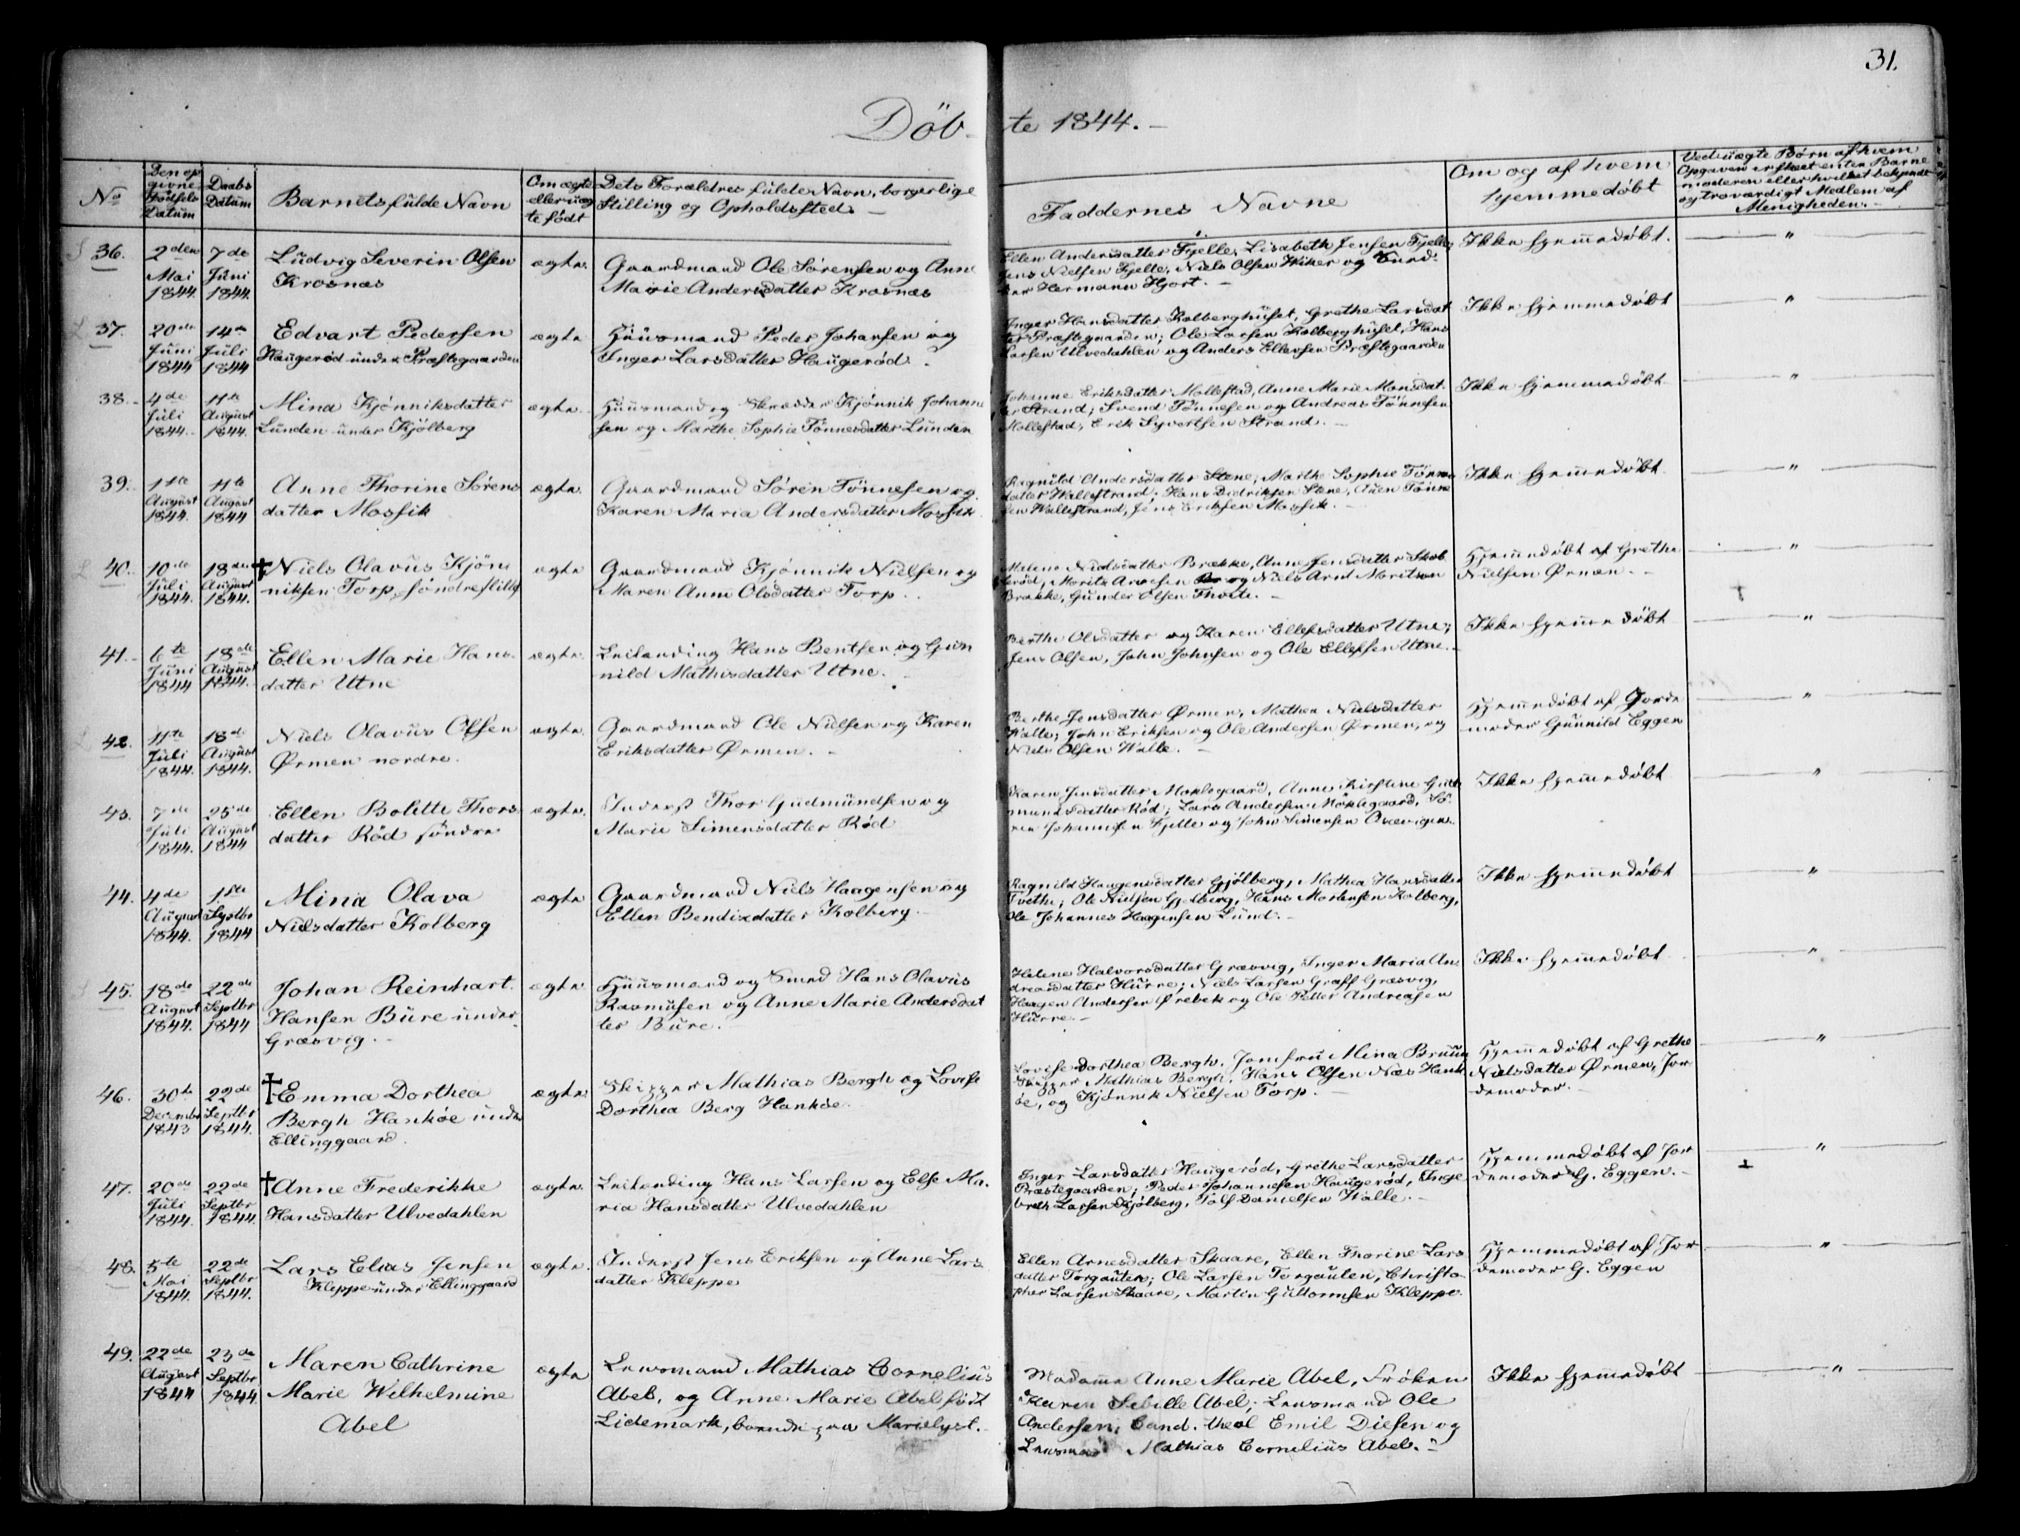 31.
Döbte 1844.
No
Den opgivne Födsels Datum
Daabs Datum
Barnets fulde Navn
Om ægte eller uægte født
Dets Forældres fulde Navn, borgerlige Stilling og Opholdssted
Faddernes Navne
Om og af hvem hjemmedøbt
Ved uægte Børn af hvem Opgaven er skeet enten Barne moderen eller hvilket bekjendt og troværdigt Medlem af Menigheden.
36.
2den Mai 1844.
7de Juni 1844.
Ludvig Severin Olsen
Krosnæs
ægte.
Gaardmand Ole Sørensen og Anne
Marie Andersdatter Krosnæs
Ellen Andersdatter Fjelle, Lisabeth Jensen Fjelle;
Jens Nielsen Fjelle, Niels Olsen Wiker og
Hermann Hjort.
Ikke hjemmedøbt.
"
37.
20de Juni 1844
14de Juli 1844
Edvart Pedersen
Haugerød under Præstegaarden
ægte
Huusmand Peder Johansen og
Inger Larsdatter Haugerød.
Inger Hansdatter Kolberghuset, Grethe Larsdat
ter Præstegaarden; Ole Larsen Kolberghuset, Hans
Larsen Ulvedahlen og Anders Ellevsen Præstegaarden
Ikke hjemmedøbt
"
38.
4de Juli 1844.
11te August 1844.
Mina Kjønniksdatter
Lunden under Kjølberg
ægte.
Huusmand og Skrædder Kjønnik Johanne
sen og Marthe Sophie Tønnesdatter Lunden
Johanne Eriksdatter Mollestad, Anne Marie Monsdat
ter Strand; Svend Tønnesen og Andreas Tønnesen
Mollestad, Erik Syvertsen Strand.
Ikke hjemmedøbt
"
39.
1ste August 1844.
11te August 1844
Anne Thorine Sørens
datter Mossik
ægte.
Gaardmand Søren Tønnesen og
Karen Maria Andersdatter Mossik
Ragnild Andersdatter Stene, Marthe Sophie Tønnes
datter Wallestrand; Hans Didriksen Stene, Aven Tønne
sen Wallestrand, Jens Eriksen Mossik.
Ikke hjemmedøbt
"
40.
10de Juli 1844.
18de August 1844.
† Niels Olavus Kjøn
niksen Torp søndre
ægte
Gaardmand Kjønnik Nielsen og
Maren Anne Olsdatter Torp.
Malene Nielsdatter Brække, Anne Jensdatter
Moritz Arnesen og Niels Arnt Moritsen
Brække, Gunder Olsen
Hjemmedøbt af Grethe
Nielsen Ørmen.
"
41.
6te Juni 1844
18de August 1844.
Ellen Marie Hans
datter Utne
ægte.
Leilending Hans Bentsen og Gun
nild Mathisdatter Utne.
Berthe Olsdatter og Karen Ellefsdatter Utne;
Jens Olsen, John Johnsen og Ole Ellefsen Utne.
Ikke hjemmedøbt
"
42.
11te Juli 1844.
18de August 1844.
Niels Olavus Olsen
Ørmen nordre.
ægte.
Gaardmand Ole Nielsen og Karen
Eriksdatter Ørmen.
Berthe Jensdatter Ørmen, Mathea Nielsdatter
Walle; John Eriksen og Ole Andersen Ørmen, og
Niels Olsen Walle.
Hjemmedøbt af Jorde
moder Gunnild Eggen
"
43.
7de Juli 1844.
25de August 1844
Ellen Bolette Thors
datter Rød søndre
ægte.
Inderst Thor Gudmundsen og
Marie Simensdatter Rød
Karen Jensdatter Møklegaard, Anne Kirstine Gud
mundsdatter Rød; Lars Andersen Møklegaard, Sø
ren Johannesen Fjelle og John Simensen
Ikke hjemmedøbt
"
44.
4de August 1844.
1ste Septbr 1844
Mina Olava
Nielsdatter Kolberg
ægte
Gaardmand Niels Haagensen og
Ellen Bendixdatter Kolberg.
Ragnild Haagensdatter Gjølberg, Mathea Hansdatter
Tvethe; Ole Nielsen Gjølberg, Hans Mortensen Kolberg,
Ole Johannes Haagensen Lund.
Ikke hjemmedøbt
"
45.
18de August 1844.
22de Septbr 1844
Johan Reinhart
Hansen Bure under
Græsvig.
ægte
Huusmand og Smed Hans Olavus
Rasmusen og Anne Marie Andersdat
ter Bure.
Helene Halvorsdatter Græsvig, Inger Maria An
dreasdatter Hurre; Niels Larsen Graff Græsvig,
Haagen Andersen Ørebek og Ole Petter Andreasen
Hurre.
Ikke hjemmedøbt
"
46.
30te December 1843
22de Septbr 1844.
† Emma Dorthea
Bergh Hankøe under
Ellinggaard.
ægte.
Skipper Mathias Bergh og Lovise
Dorthea Berg Hankøe.
Lovise Dorthea Bergh, Jomfru Mina Bruun
Skipper Mathias Bergh, Hans Olsen Næs Hank
øe, og Kjønnik Nielsen Torp.
Hjemmedøbt af Grethe
Nielsdatter Ørmen, Jor
demoder.
"
47.
20de Juli 1844.
22de Septbr 1844.
† Anne Frederikke
Hansdatter Ulvedahlen
ægte.
Leilending Hans Larsen og Else Ma
ria Hansdatter Ulvedahlen
Inger Larsdatter Haugerød, Grethe Larsdatter
Præstegaarden; Peder Johannesen Haugerød, Inge
breth Larsen Kjølberg, Tolf Danielsen Walle.
Hjemmedøbt af Jor
demoder G. Eggen.
"
48.
5te Mai 1844.
22de Septbr 1844.
Lars Elias Jensen
Kleppe under Ellinggaard
ægte.
Inderst Jens Eriksen og Anne Lars
datter Kleppe
Ellen Arnesdatter Skaare, Ellen Thorine Lars
datter Torgauten; Ole Larsen Torgauten, Christo
pher Larsen Skaare, Martin Guttormsen Kleppe.
Hjemmedøbt af Jor
demoder G. Eggen
"
49.
22de August 1844
23de Septbr 1844.
Maren Cathrine
Marie Wilhelmine
Abel
ægte
Lensmand Mathias Cornelius
Abel, og Anne Marie Abel født
Lidemark, boende paa Marielyst.
Madame Anne Marie Abel, Frøken
Karen Sebille Abel; Lensmand Ole
Andersen, Cand. theol Emil Diesen og
Lensmand Mathias Cornelius Abel.
Ikke hjemmedøbt
"